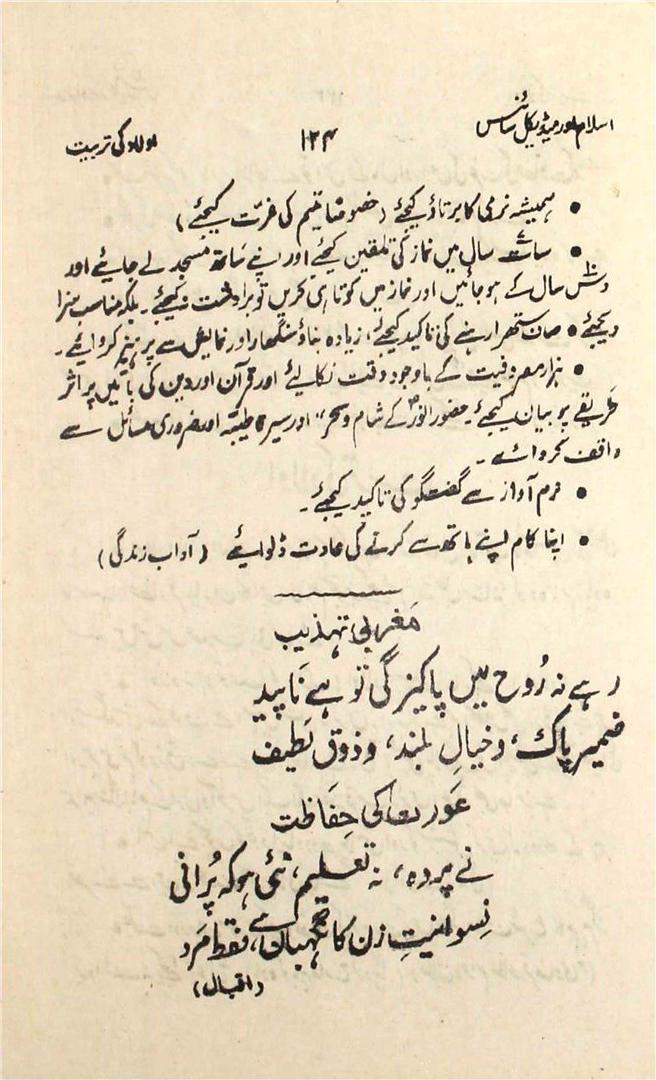 اسلام اور میڈیکل سائنس ۱۲۴ اولاد کی تربیت
• ہمیشہ نرمی کا برتاؤ کیجئے (خصوصاً یتیم کی عزت کیجئے)
• سات سال میں نماز کی تلقین کیجئے اور اپنے ساتھ مسجد لے جایئے اور
دس سال کے ہو جائیں اور نماز میں کوتاہی کریں تو برداشت نہ کیجئے۔ بلکہ مناسب سزا
دیجئے • صاف ستھرا رہنے کی تاکید کیجئے، زیادہ بناؤ سنگھار اور نمائش سے پرہیز کروایئے۔
• ہزار مصروفیت کے باوجود وقت نکالیئے اور قرآن اور دین کی باتیں پر اثر
طریقے پر بیان کیجئے۔ حضور انورؐ کے شام و سحر" اور سیرۃ طیبہ اور ضروری مسائل سے
واقف کروائے۔
• نرم آواز سے گفتگو کی تاکید کیجئے۔
• اپنا کام اپنے ہاتھ سے کرنے کی عادت ڈلوایئے (آداب زندگی)
مغربی تہذیب
رہے نہ رُوح میں پاکیزگی تو ہے ناپید
ضمیر پاک، و خیالِ بلند، و ذوق لطیف
عورت کی حِفاظت
نے پردہ، نہ تعلیم، نئی ہو کہ پُرانی
نِسوانیتِ زن کا نگہبان ہے، فقط مَرد
(اقبال)